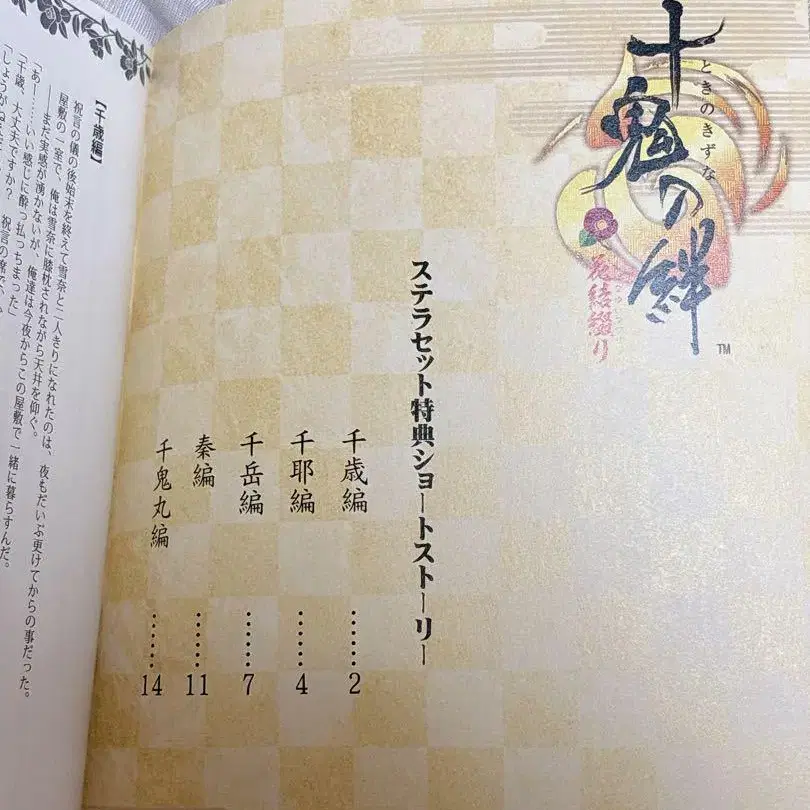 十鬼の絆
ときのきずな
花結綴り
TM
ステラセット特典ショートストーリー
千歳編……2
千耶編……4
千岳編……7
秦編……11
千鬼丸編……14
【千歳編】
祝言の儀の後始末を終えて雪奈と二人きりになれたのは、夜もだいぶ更けてからの事だった。
屋敷の一室で、俺は雪奈に膝枕されながら天井を仰ぐ。
――まだ実感が湧かないが、俺達は今夜からこの屋敷で一緒に暮らすんだ。
「あー……いい感じに酔っ払っちまった」
「千歳、大丈夫ですか？　祝言の席で、